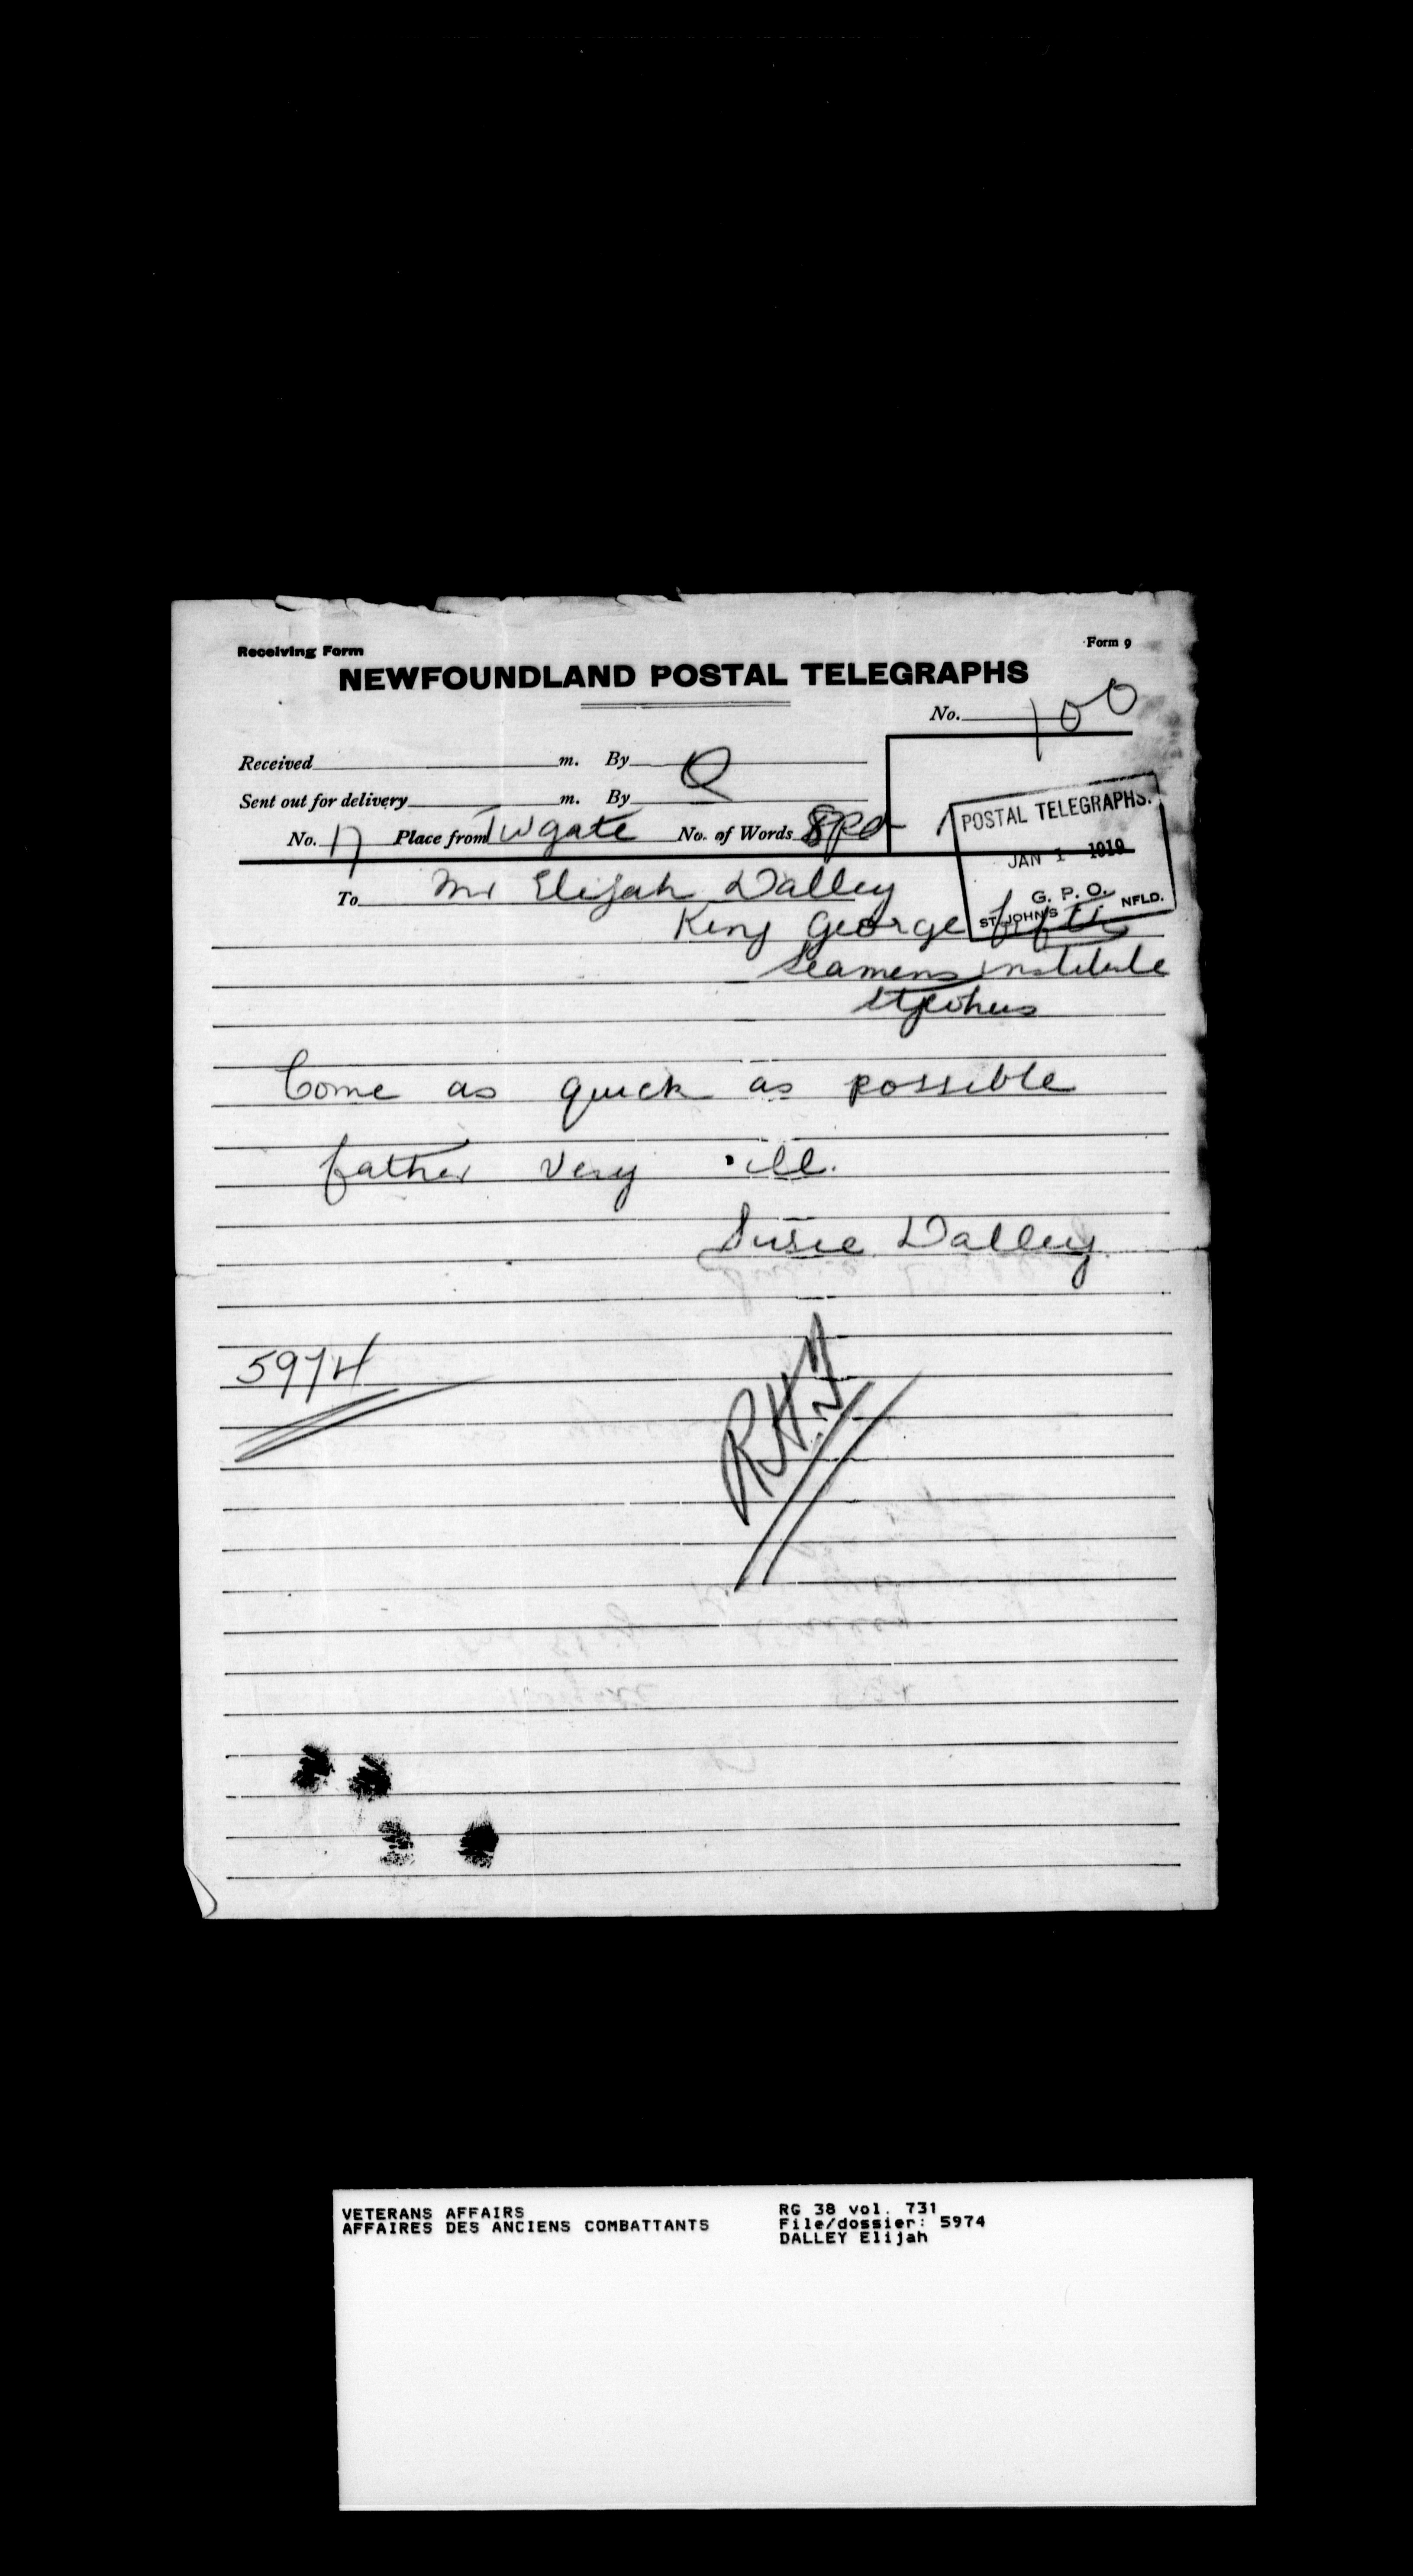 Receiving Form
Form 9
NEWFOUNDLAND POSTAL TELEGRAPHS
No. 100
Received m. By Q
Sent out for delivery m. By
No. 17 Place from Twgate No. of Words 8 Pd
POSTAL TELEGRAPHS.
JAN 1 1919
G. P. O.
ST. JOHN'S NFLD.
To Mr Elijah Dalley
King George fifth
Seamens institute
St Johns
Come as quick as possible
father very ill.
Susie Dalley
5974
VETERANS AFFAIRS
AFFAIRES DES ANCIENS COMBATTANTS
RG 38 vol. 731
File/dossier: 5974
DALLEY Elijah